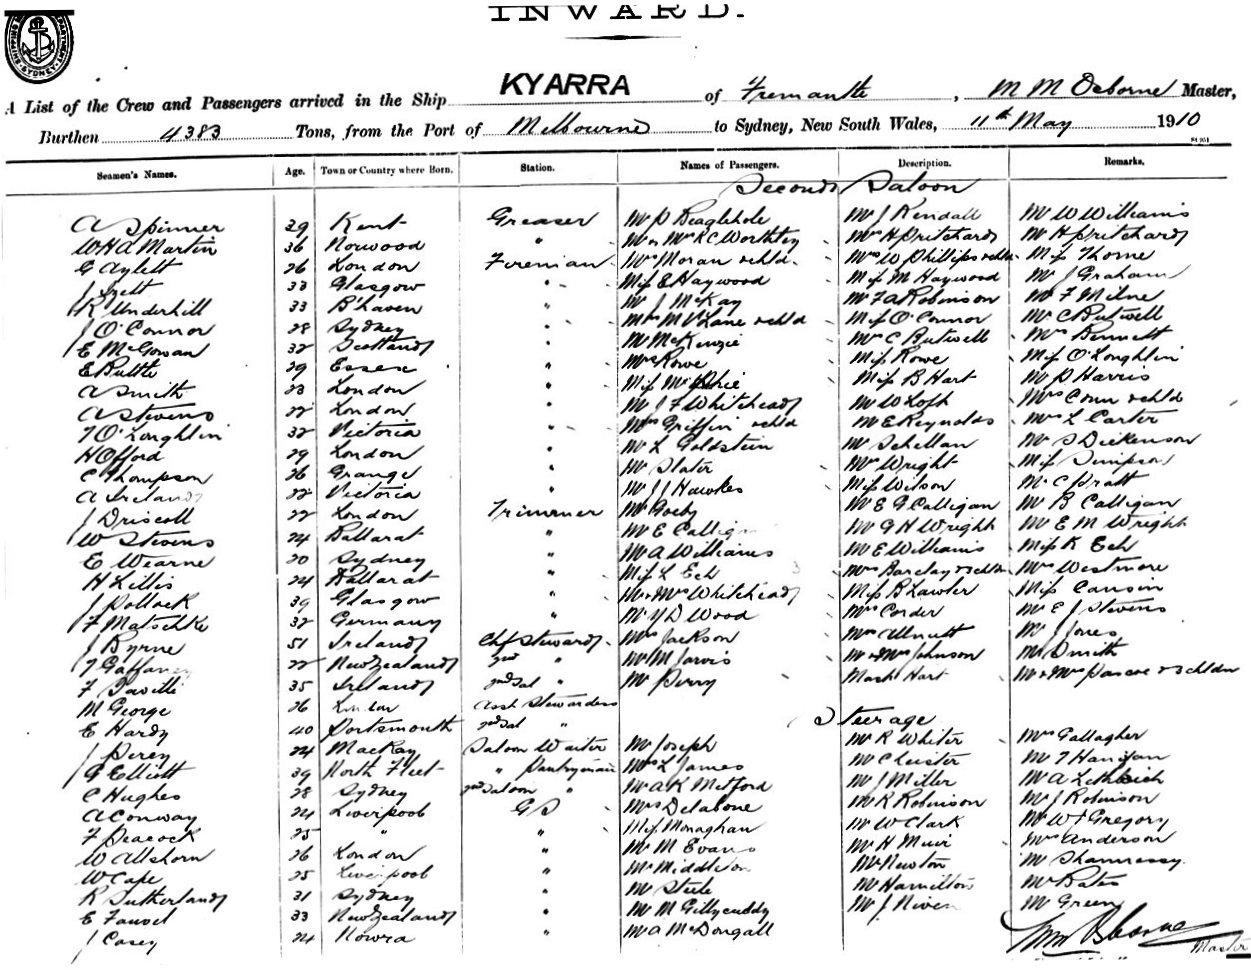 INWARD.
KYARRA
A List of the Crew and Passengers arrived in the Ship KYARRA of Fremantle, M M Osborne Master,
Burthen 4383 Tons, from the Port of Melbourne to Sydney, New South Wales, 11th May 1910
Seamen's Names. Age. Town or Country where Born. Station. Names of Passengers. Description. Remarks.
Second Saloon
A Spinner 29 Kent Greaser Mr P Beaglehole Mr J Kendall Mr W Williams
W H A Martin 36 Norwood " Mr & Mrs R C Worthley Mrs H Pritchard Mr H Pritchard
G Aylett 26 London Fireman Mrs Moran & chld Mrs W Phillips & chld Miss Thorne
J 33 Glasgow " Miss E Haywood Miss M Haywood Mr J Graham
R Underhill 33 B'haven " Mr J McKay Mr F A Robinson Mr F Milne
J O'Connor 28 Sydney " Mrs M V Lane & chld Miss O'Connor Mr C Butwell
E McGowan 32 Scotland " Mr McKenzie Mr C Butwell Mrs Bennett
E Buttle 29 Essex " Mrs Rowe Miss Rowe Miss O'Loghlin
A Smith 23 London " Miss Miss B Hart Mr P Harris
A Stevens 22 London " Mr J F Whitehead Mr W Loft Mrs Conn & chld
T O'Loughlin 32 Victoria " Mrs Griffin & chld Mr E Reynolds Mrs L Carter
H Offord 29 London " Mr L Goldstein Mr Schellan Mr S Dickenson
C Thompson 26 Grange " Mr Slater Mr Wright Miss Simpson
A Ireland 22 Victoria " Mr J J Hawkes Miss Wilson Mr C Pratt
J Driscoll 22 London Trimmer Mr Goeby Mr E G Calligan Mr B Calligan
W Stevens 24 Ballarat " Mr E Calligan Mr G H Wright Mr E M Wright
E Wearne 20 Sydney " Mr A Williams Mr E Williams Miss K Ech
H Lillis 24 Ballarat " Miss L Ech Mrs Barclay & 3 chldn Mrs Westmore
J Pollock 39 Glasgow " Mr & Mrs Whitehead Miss B Lawler Miss Cansin
F Matschke 32 Germany " Mr Y D Wood Mrs Corder Mr E J Stevens
J Byrne 51 Ireland Chf Steward Mrs Jackson Mrs Allnutt Mr J Jones
T Gaffaney 22 New Zealand 2nd " Mr M Jarvis Mr & Mrs Johnson Mr Smith
F Saville 35 Ireland 2nd Sal " Mr Perry Mast Hart Mr & Mrs Pascoe & 5 chldn
M George 26 London Asst Stewardess
Steerage
E Hardy 40 Portsmouth 2nd Sal " Mr R Whiter Mrs Gallagher
J Perey 24 Mackay Saloon Waiter Mr Joseph Mr C Luster Mr T Hanigan
G Elliott 39 North Fleet " Pantryman Mrs L James Mr J Miller Mr A Lethbrich
C Hughes 28 Sydney 2nd Saloon " Mr A K Metford Mr R Robinson Mr J Robinson
A Conway 24 Liverpool G S Mrs Delabone Mr W Clark Mr W T Gregory
F Peacock 25 " " Miss Monaghan Mr H Muir Mrs Anderson
W Allshorn 26 London " Mr M Evans Mr Newton Mr Shannessy
W Cape 25 Liverpool " Mr Middleton Mr Hamilton Mr Bates
R Sutherland 31 Sydney " Mr Steele Mr J Niven Mr Green
E Fauvel 33 New Zealand " Mr M Gillycuddy
J Casey 24 Nowra " Mr A McDongall
M M Osborne
Master